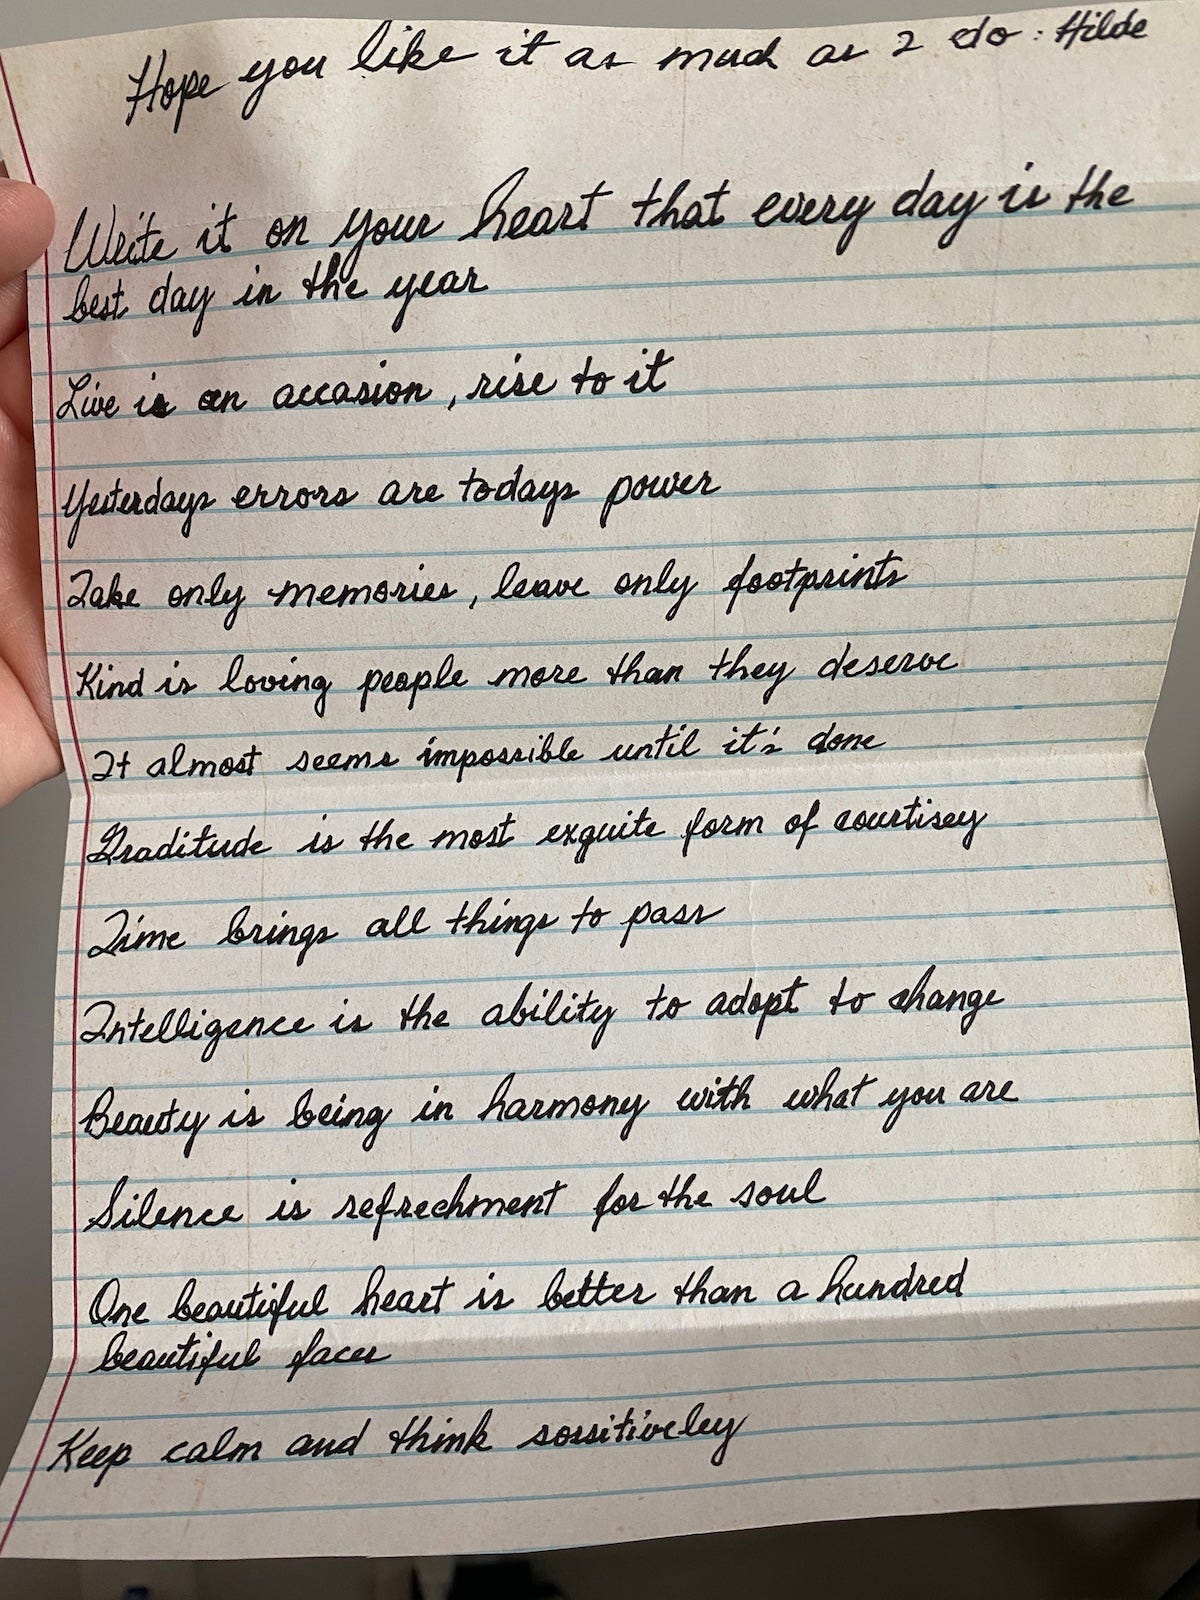 Hope you like it as much as I do : Hilde
Write it on your heart that every day is the
best day in the year
Live is an accasion, rise to it
Yesterdays errors are todays power
Take only memories, leave only footprints
Kind is loving people more than they deserve
It almost seems impossible until it's done
Graditude is the most exquite form of courtisey
Time brings all things to pass
Intelligence is the ability to adopt to change
Beauty is being in harmony with what you are
Silence is refrechment for the soul
One beautiful heart is better than a hundred
beautiful faces
Keep calm and think sossitiveley